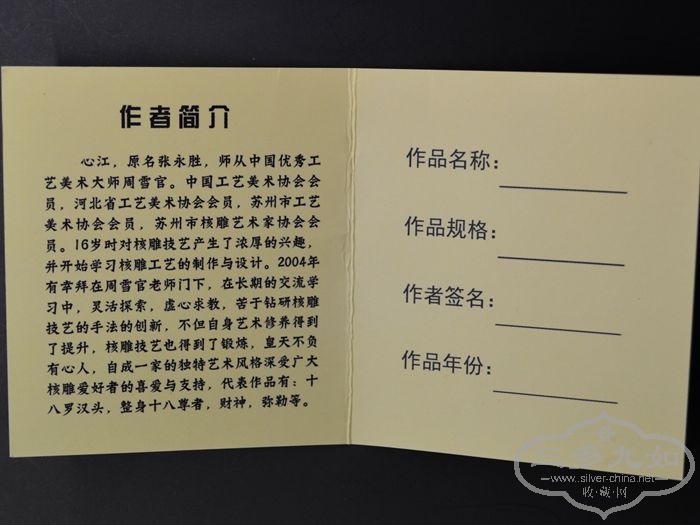 作者简介
心江，原名张永胜，师从中国优秀工
艺美术大师周雪官。中国工艺美术协会会
员，河北省工艺美术协会会员，苏州市工艺
美术协会会员，苏州市核雕艺术家协会会
员。16岁时对核雕技艺产生了浓厚的兴趣，
并开始学习核雕工艺的制作与设计。2004年
有幸拜在周雪官老师门下，在长期的交流学
习中，灵活探索，虚心求教，苦于钻研核雕
技艺的手法的创新，不但自身艺术修养得到
了提升，核雕技艺也得到了锻炼，皇天不负
有心人，自成一家的独特艺术风格深爱广大
核雕爱好者的喜爱与支持，代表作品有：十
八罗汉头，整身十八尊者，财神，弥勒等。
作品名称：
作品规格：
作者签名：
作品年份：
www.silver-china.net
收·藏·网